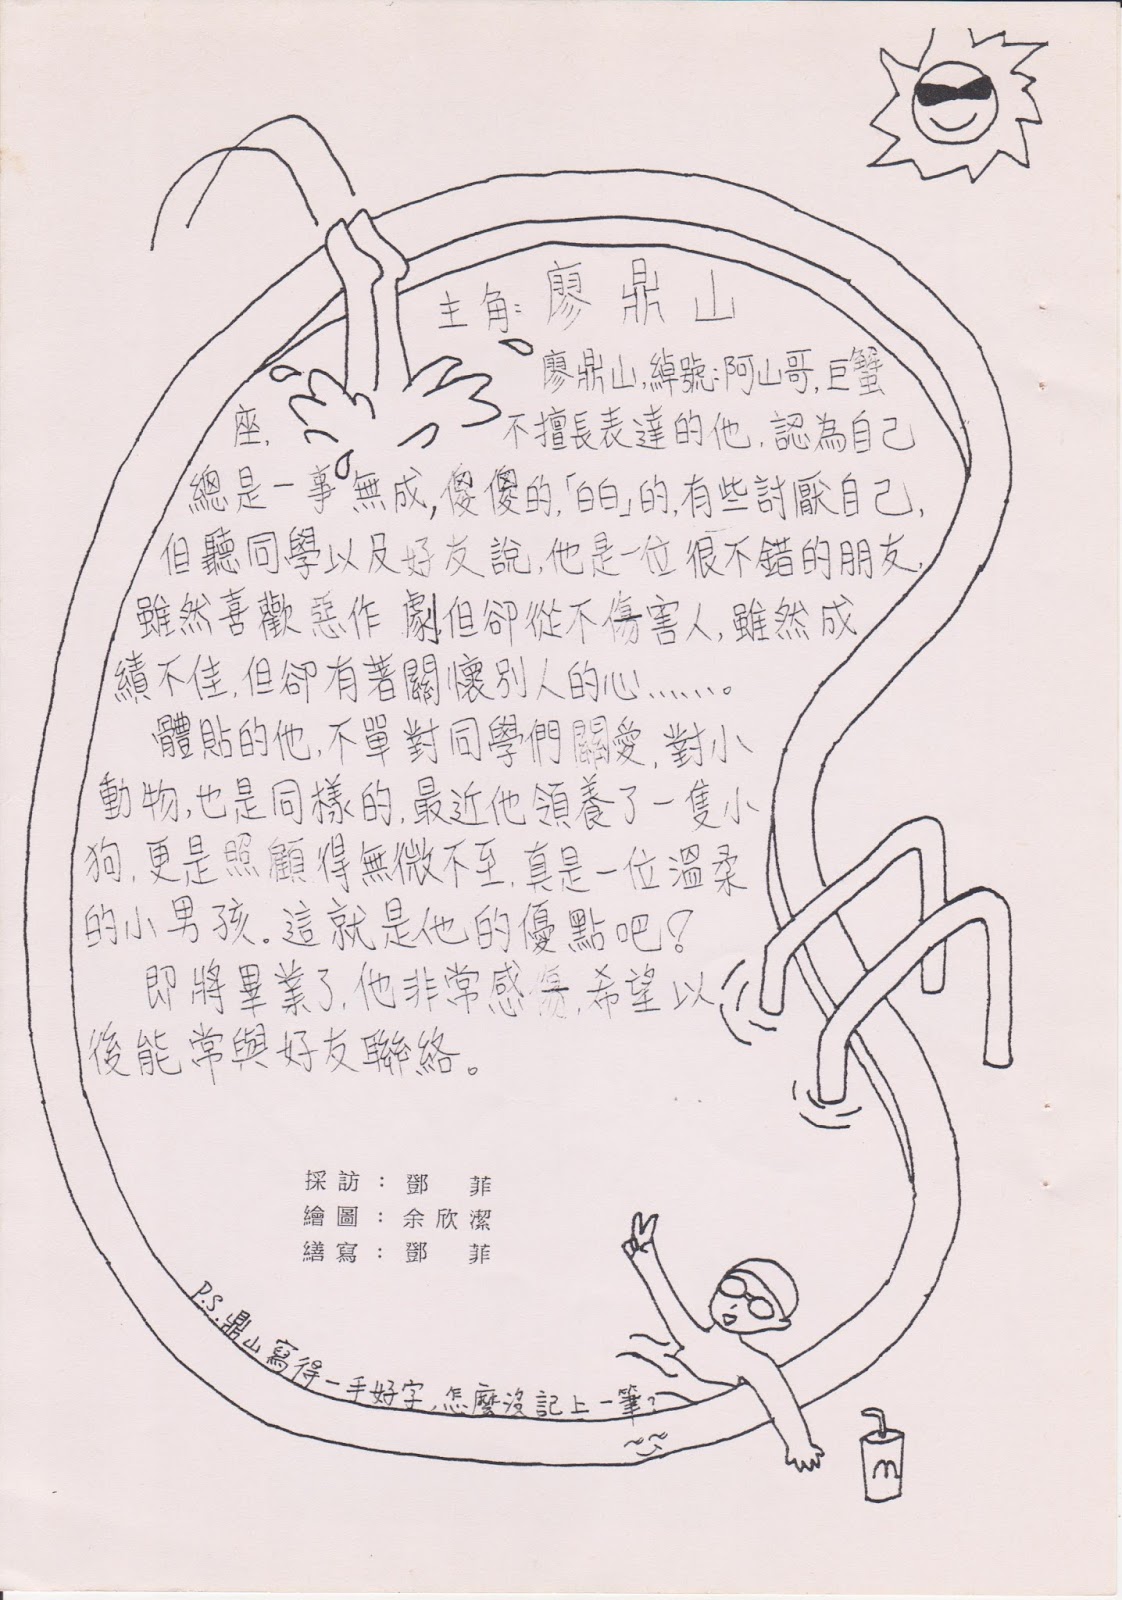 主角:廖鼎山
廖鼎山,綽號:阿山哥,巨蟹
座, 不擅長表達的他,認為自己
總是一事無成,傻傻的,「白白」的,有些討厭自己,
但聽同學以及好友說,他是一位很不錯的朋友,
雖然喜歡惡作劇但卻從不傷害人,雖然成
績不佳,但卻有著關懷別人的心……。
體貼的他,不單對同學們關愛,對小
動物,也是同樣的,最近他領養了一隻小
狗,更是照顧得無微不至,真是一位溫柔
的小男孩。這就是他的優點吧?
即將畢業了,他非常感傷,希望以
後能常與好友聯絡。
採訪:鄧 菲
繪圖:余欣潔
繕寫:鄧 菲
P.S.鼎山寫得一手好字,怎麼沒記上一筆?
m